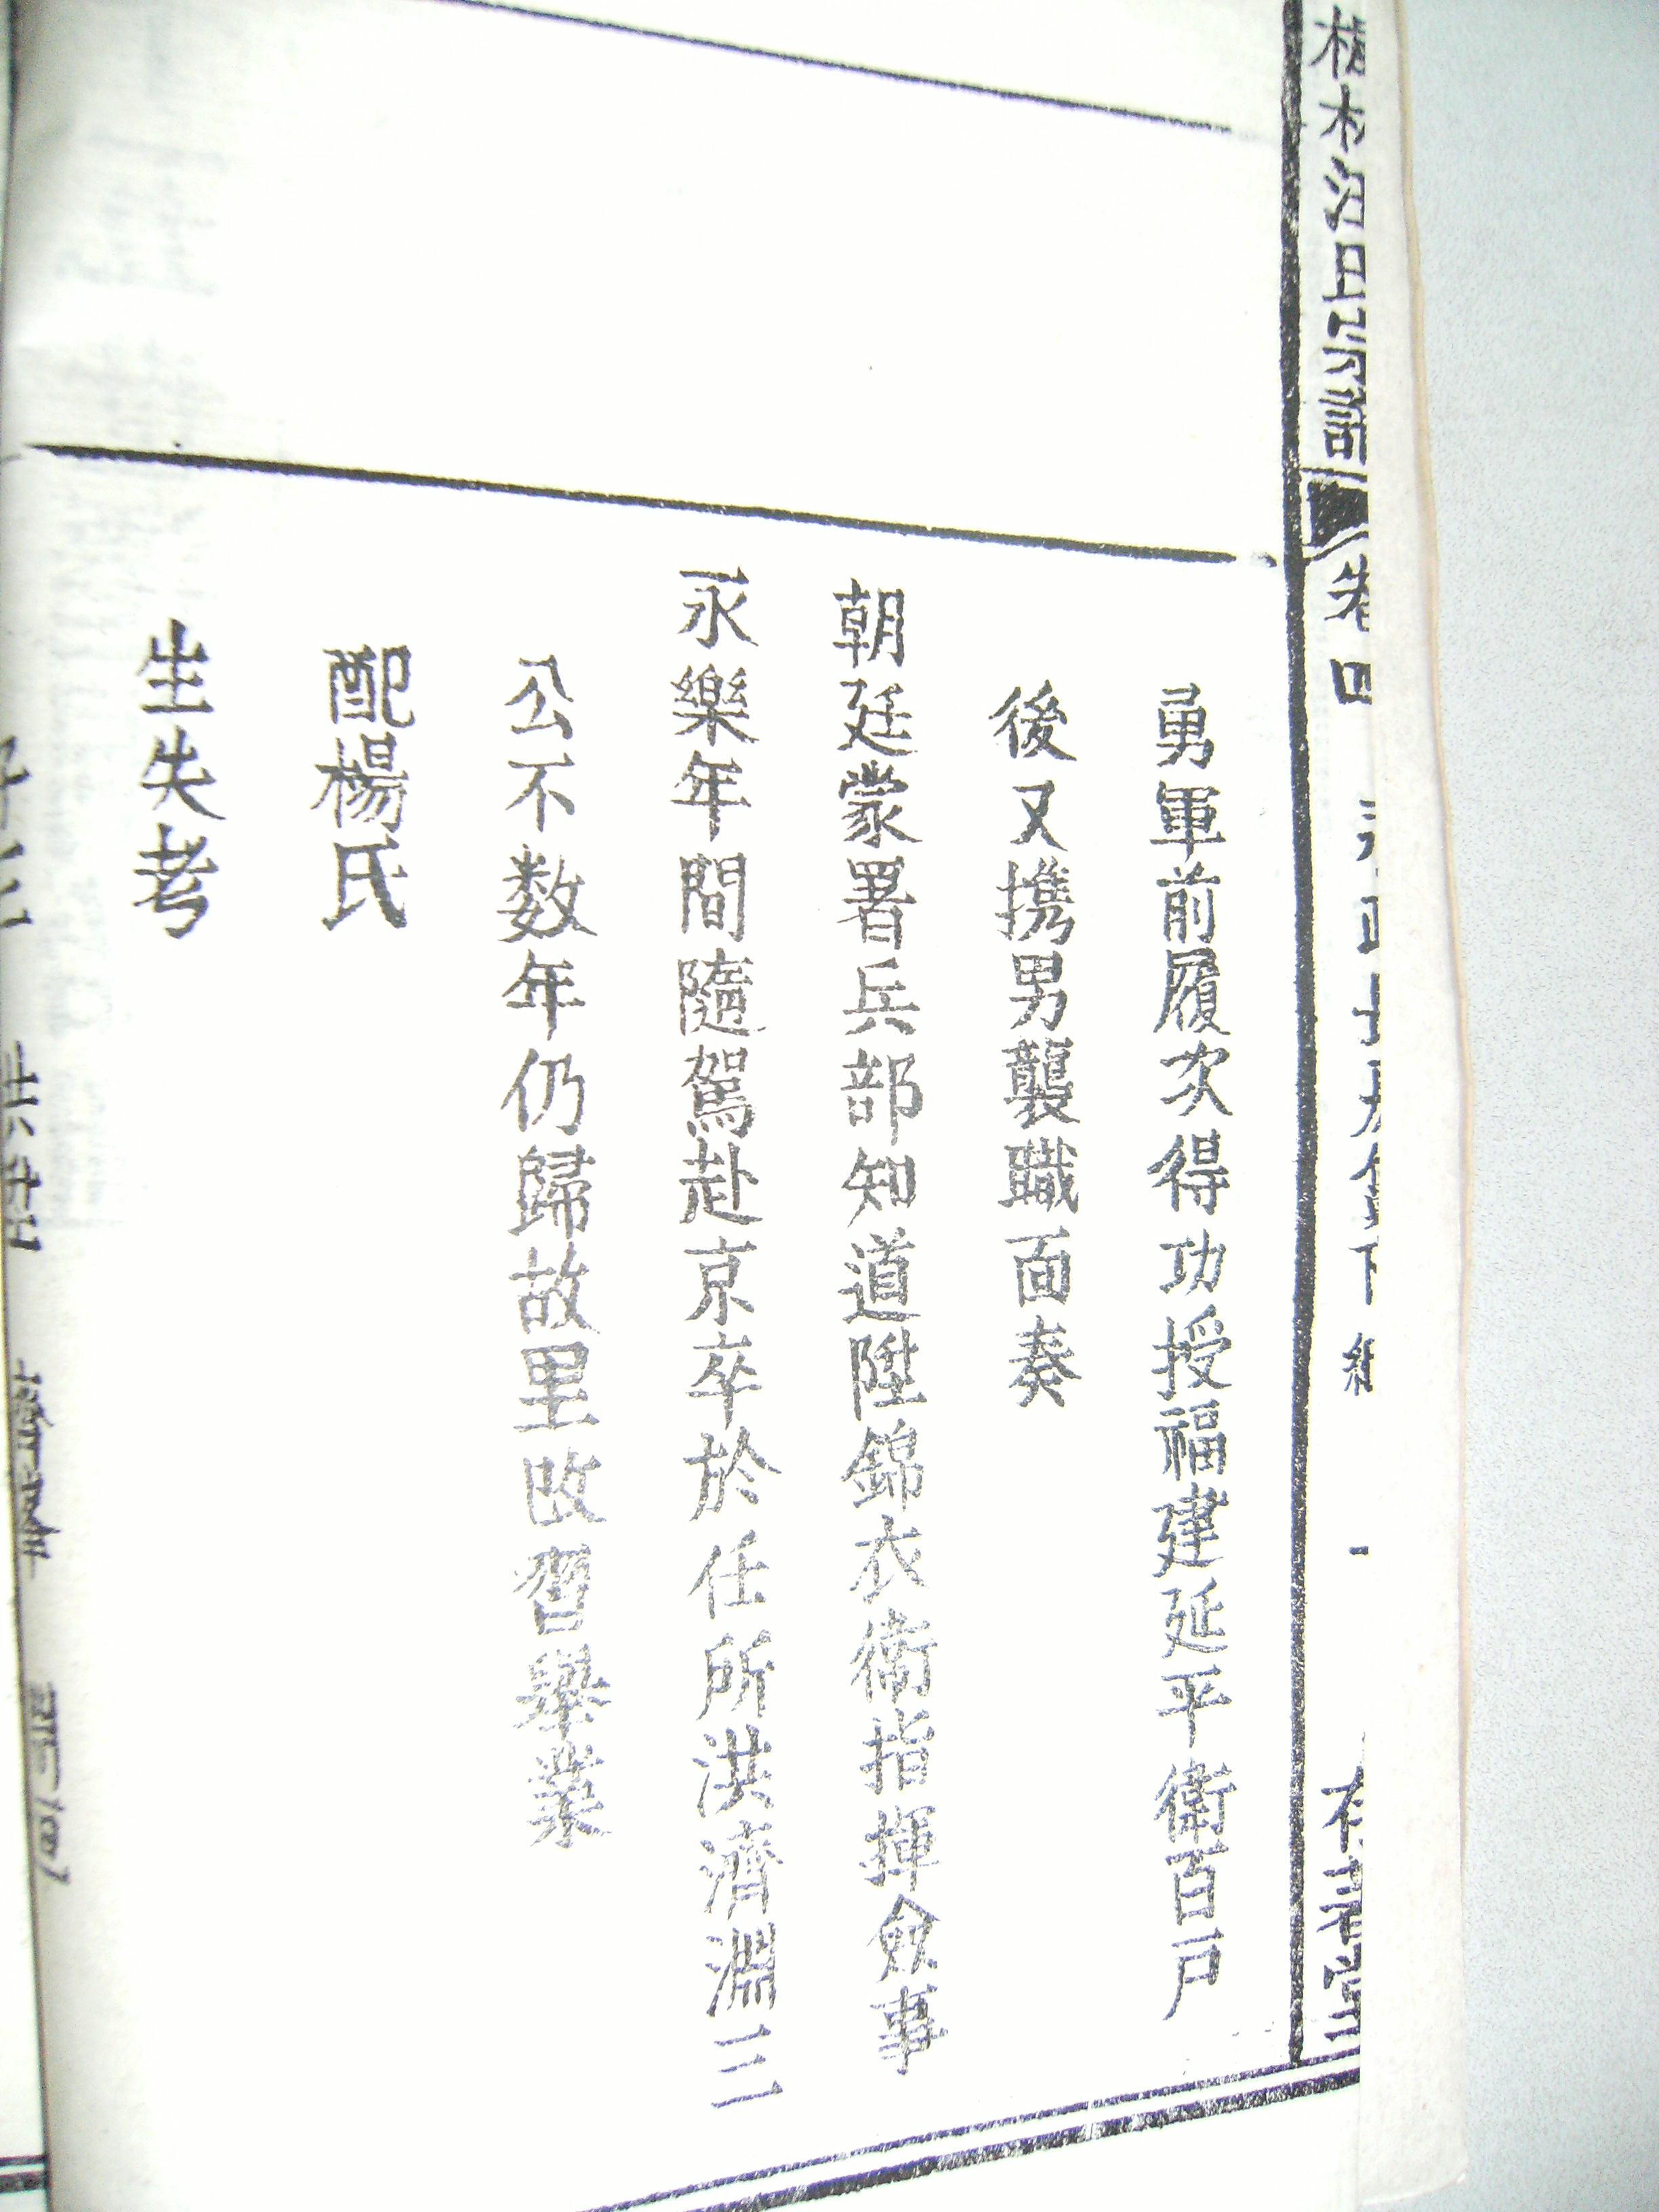 卷四
勇軍前履次得功授福建延平衛百戶
後又携男襲職面奏
朝廷蒙署兵部知道陞錦衣衛指揮僉事
永樂年間隨駕赴京卒於任所洪濟淵三
公不数年仍歸故里改習舉業
配楊氏
生失考